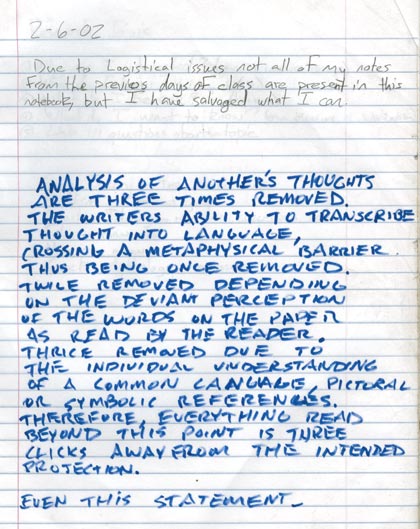 2-6-02
Due to Logistical issues not all of my notes
from the previos days of class are present in this
notebook, but I have salvaged what I can.
ANALYSIS OF ANOTHER'S THOUGHTS
ARE THREE TIMES REMOVED.
THE WRITERS ABILITY TO TRANSCRIBE
THOUGHT INTO LANGUAGE,
CROSSING A METAPHYSICAL BARRIER.
THUS BEING ONCE REMOVED.
TWICE REMOVED DEPENDING
ON THE DEVIANT PERCEPTION
OF THE WORDS ON THE PAPER
AS READ BY THE READER.
THRICE REMOVED DUE TO
THE INDIVIDUAL UNDERSTANDING
OF A COMMON LANGUAGE, PICTORAL
OR SYMBOLIC REFERENCES.
THEREFORE, EVERYTHING READ
BEYOND THIS POINT IS THREE
CLICKS AWAY FROM THE INTENDED
PROTECTION.
EVEN THIS STATEMENT_